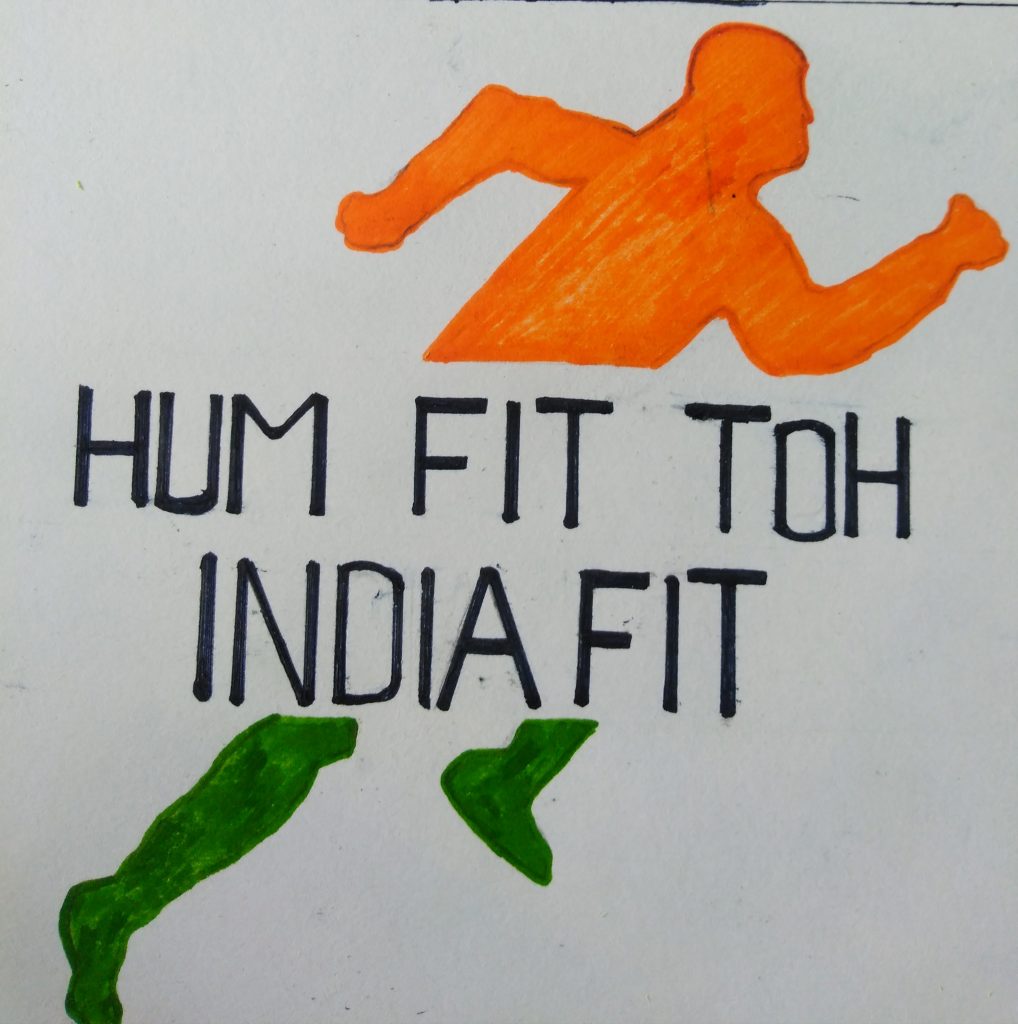 HUM FIT TOH
INDIA FIT